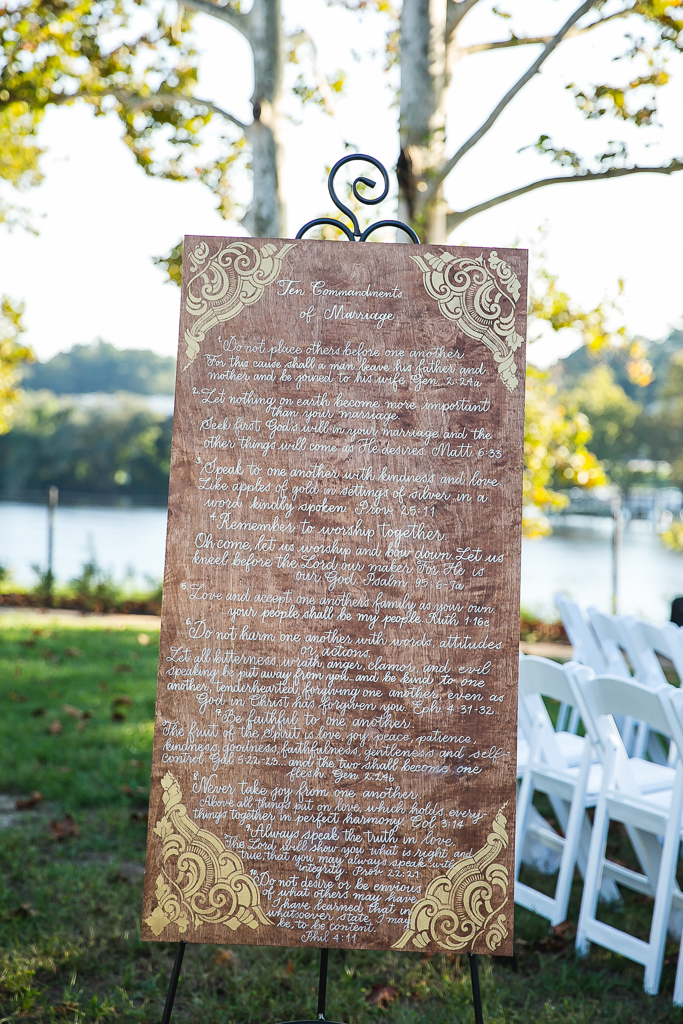 Ten Commandments
of Marriage
1. Do not place others before one another.
For this cause shall a man leave his father and
mother and be joined to his wife. Gen. 2:24a
2. Let nothing on earth become more important
than your marriage.
Seek first God's will in your marriage and the
other things will come as He desires. Matt. 6:33
3. Speak to one another with kindness and love.
Like apples of gold in settings of silver in a
word kindly spoken. Prov. 25:11
4. Remember to worship together.
Oh come, let us worship and bow down. Let us
kneel before the Lord our maker. For He is
our God. Psalm 95:6-7a
5. Love and accept one anothers family as your own.
your people shall be my people. Ruth 1:16c
6. Do not harm one another with words, attitudes
or actions.
Let all bitterness, wrath, anger, clamor, and evil
speaking be put away from you...and be kind to one
another, tenderhearted, forgiving one another, even as
God in Christ has forgiven you. Eph. 4:31-32
7. Be faithful to one another.
The fruit of the Spirit is love, joy, peace, patience,
kindness, goodness, faithfulness, gentleness, and self-
control Gal. 5:22-23...and the two shall become one
flesh. Gen 2:24b
8. Never take joy from one another.
Above all things put on love, which holds every-
things together in perfect harmony. Col. 3:14
9. Always speak the truth in love.
The Lord will show you what is right and
true, that you may always speak with
integrity. Prov. 22:21
10. Do not desire or be envious
of what others may have.
I have learned that in
whatsoever state I may
be, to be content.
Phil 4:11